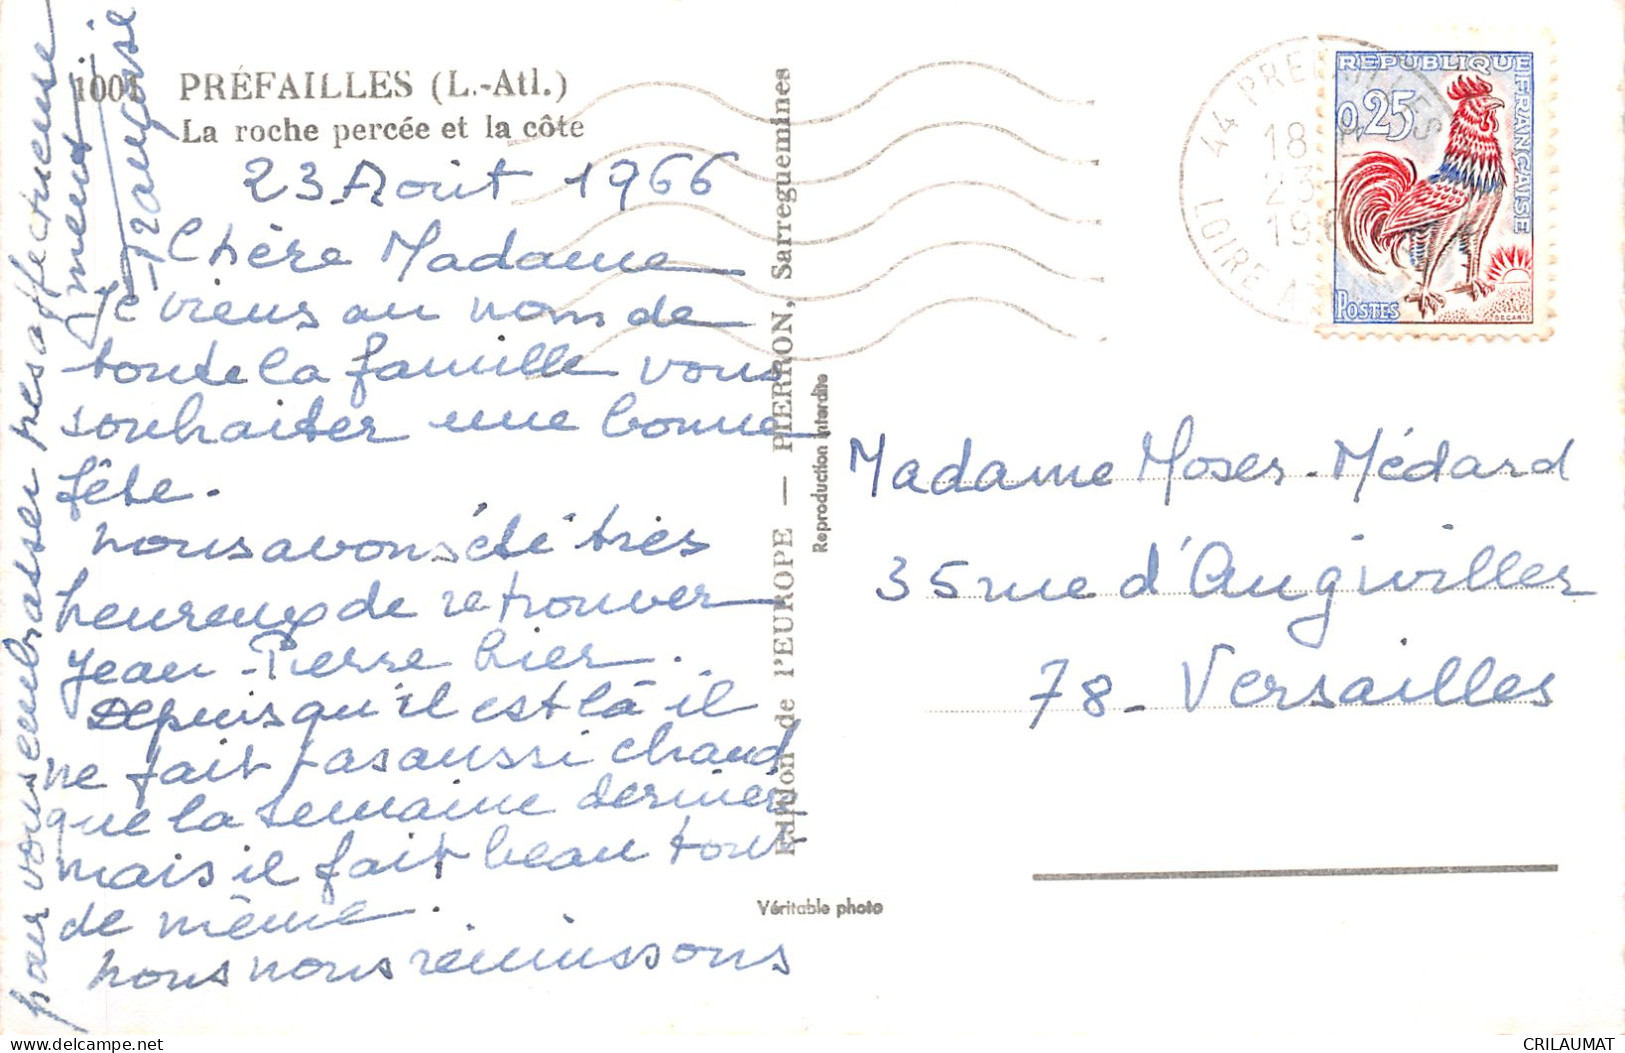 1001 PRÉFAILLES (L.-Atl.)
La roche percée et la côte
23 Août 1966
Chère Madame
Je viens au nom de
toute la famille vous
souhaiter une bonne
fête.
nous avons été très
heureux de retrouver
Jean-Pierre hier.
Depuis qu'il est là il
ne fait pas aussi chaud
que la semaine dernière
mais il fait beau tout
de même.
nous nous réunissons
pour vous embrasser très affectueuse
ment
Françoise
Edition de l'EUROPE — PIERRON, Sarreguemines
Reproduction interdite
Véritable photo
44 PREFAILLES
18
23
19
LOIRE
REPUBLIQUE FRANÇAISE
0,25
POSTES
DECARIS
Madame Moser-Médard
35 rue d'Angiviller
78 - Versailles
https://www.delcampe.net
CRILAUMAT